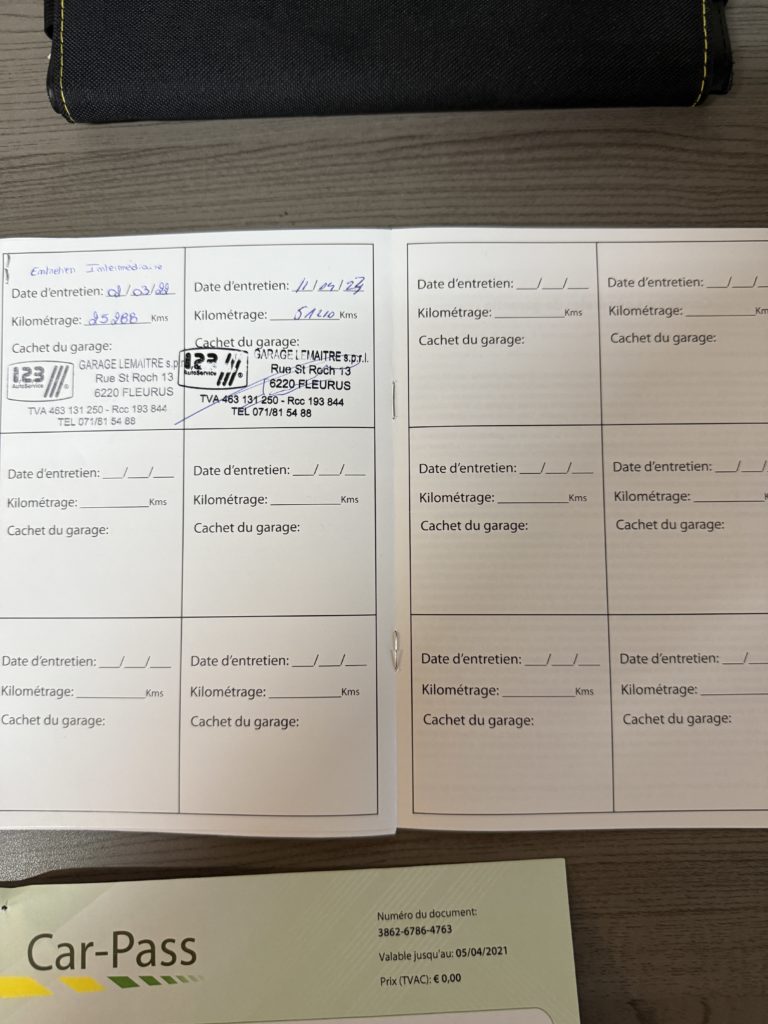 Entretien Intermédiaire
Date d'entretien: 02/03/22
Kilométrage: 25288 Kms
Cachet du garage:
1.2.3
AutoService
GARAGE LEMAITRE s.p.r.l.
Rue St Roch 13
6220 FLEURUS
TVA 463 131 250 - Rcc 193 844
TEL 071/81 54 88
Date d'entretien: 11/04/24
Kilométrage: 51210 Kms
Cachet du garage:
1.2.3
AutoService
GARAGE LEMAITRE s.p.r.l.
Rue St Roch 13
6220 FLEURUS
TVA 463 131 250 - Rcc 193 844
TEL 071/81 54 88
Date d'entretien: ___/___/___
Kilométrage: _________ Kms
Cachet du garage:
Date d'entretien: ___/___/___
Kilométrage: _________ Kms
Cachet du garage:
Date d'entretien: ___/___/___
Kilométrage: _________ Kms
Cachet du garage:
Date d'entretien: ___/___/___
Kilométrage: _________ Kms
Cachet du garage:
Date d'entretien: ___/___/___
Kilométrage: _________ Kms
Cachet du garage:
Date d'entretien: ___/___/___
Kilométrage: _________ Kms
Cachet du garage:
Date d'entretien: ___/___/___
Kilométrage: _________ Kms
Cachet du garage:
Date d'entretien: ___/___/
Kilométrage: _________ K
Cachet du garage:
Date d'entretien: ___/___/___
Kilométrage: _________ Kms
Cachet du garage:
Date d'entretien: ___/
Kilométrage: _________
Cachet du garage:
Car-Pass
Numéro du document:
3862-6786-4763
Valable jusqu'au: 05/04/2021
Prix (TVAC): € 0,00